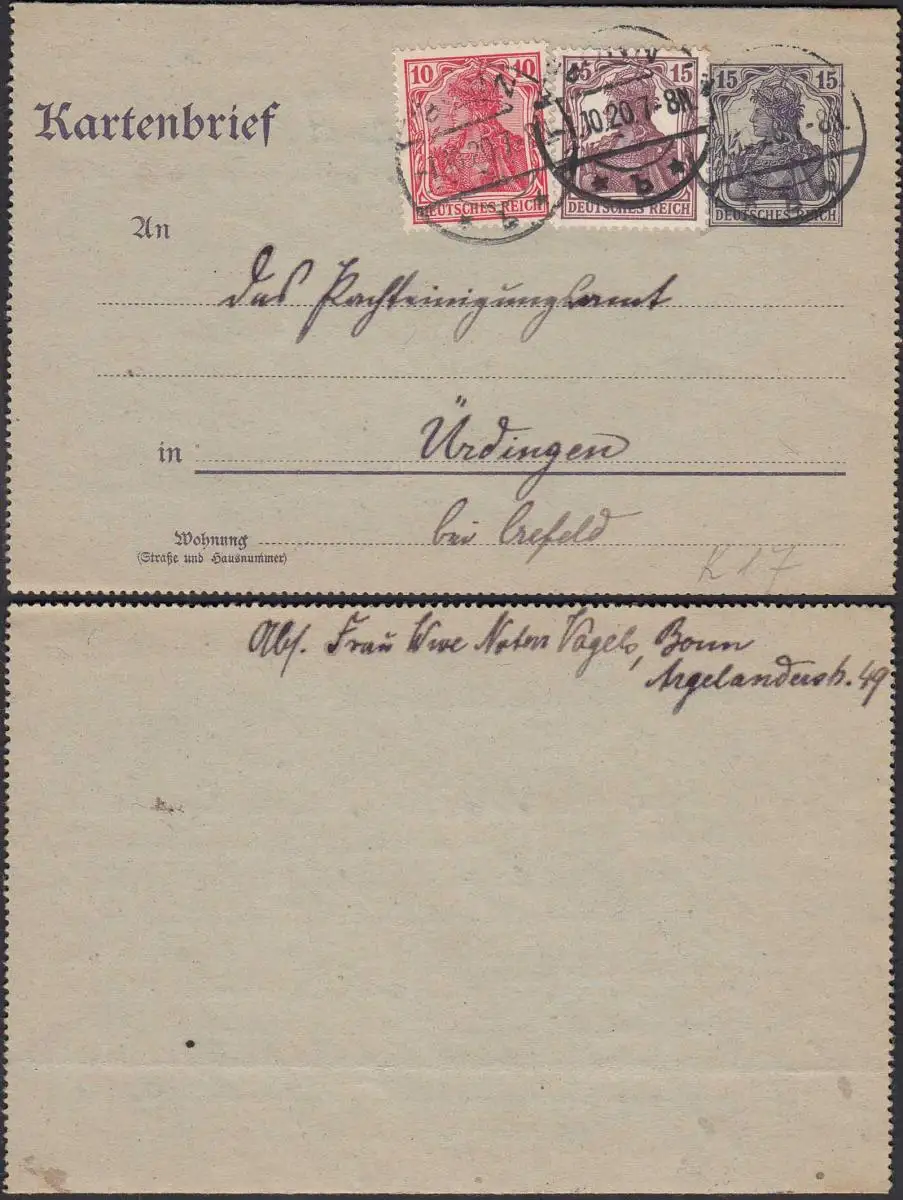 Kartenbrief
10 10
DEUTSCHES REICH
15 15
DEUTSCHES REICH
15 15
DEUTSCHES REICH
10.20.7-8N
* b *
An
das Pachteinigungsamt
in Ürdingen
Wohnung bei Crefeld
(Straße und Hausnummer)
K 17
Abs. Frau Wwe Notar Vogels, Bonn
Argelanderstr. 49